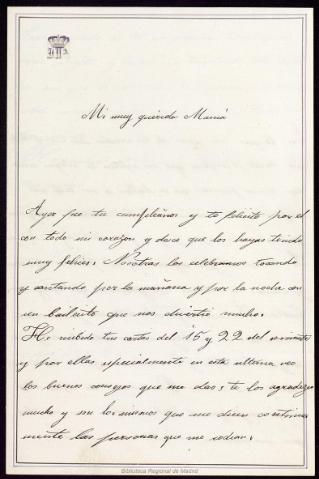 Mi muy querida Mamá
Ayer fue tu cumpleaños y te felicito por el
con todo mi corazon y deseo que los hayas tenido
muy felices. Nosotras los celebramos tocando
y cantando por la mañana y por la noche con
un bailecito que nos divirtió mucho.
He recibido tus cartas del 15 y 22 del corriente
y por ellas especialmente en esta ultima veo
los buenos consejos que me das; te los agradezco
mucho y son los mismos que me dicen continua
mente las personas que me rodean.
Biblioteca Regional de Madrid